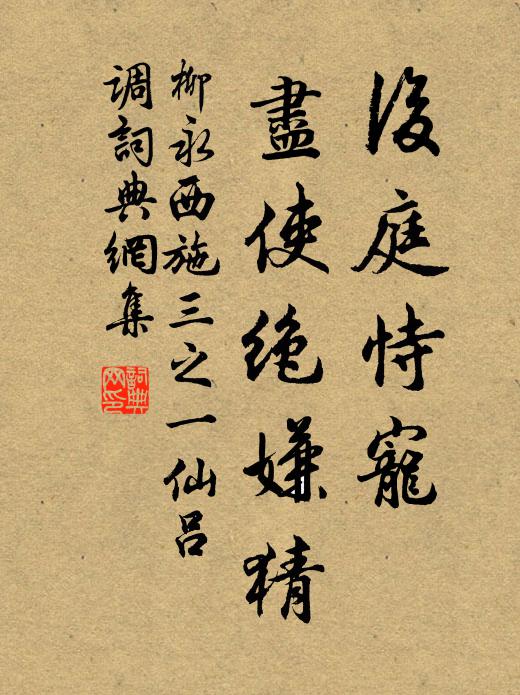 後庭恃寵
盡使絶嫌猜
柳永西施三之一仙呂
調詞典網集
詞典网印